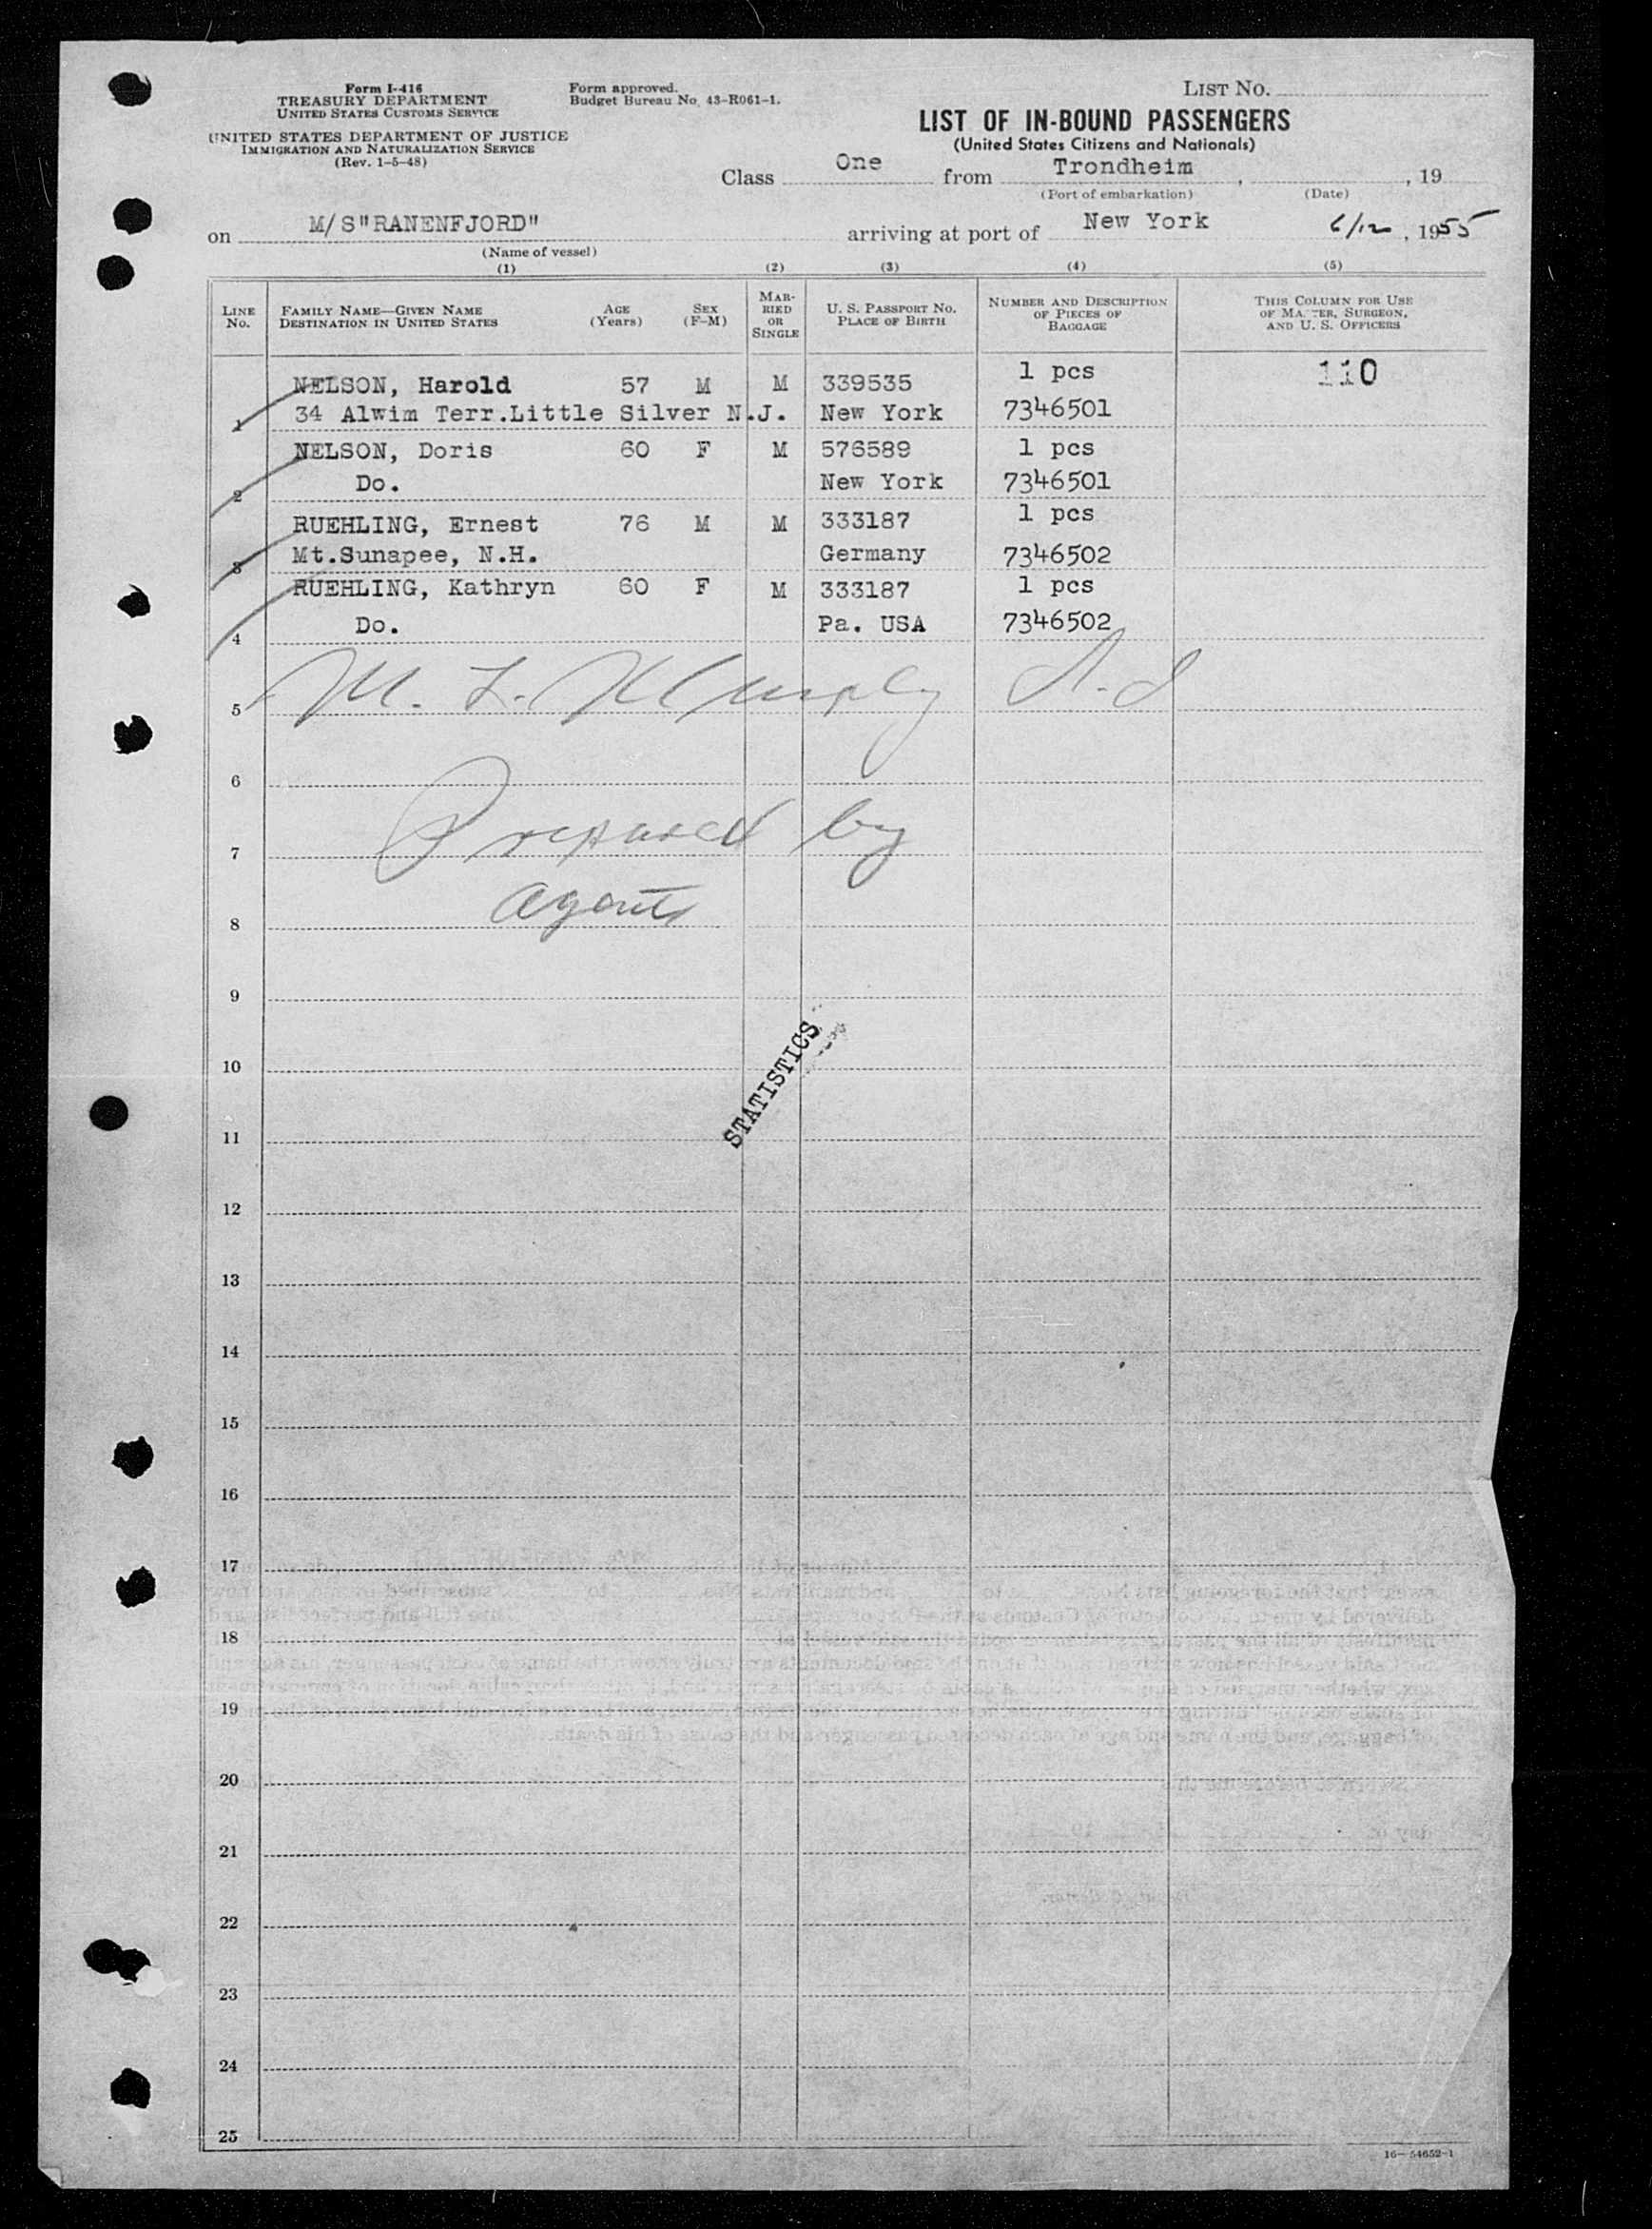 Form I-416
TREASURY DEPARTMENT
UNITED STATES CUSTOMS SERVICE
UNITED STATES DEPARTMENT OF JUSTICE
IMMIGRATION AND NATURALIZATION SERVICE
(Rev. 1-5-48)
Form approved.
Budget Bureau No. 43-R061-1.
LIST NO.
LIST OF IN-BOUND PASSENGERS
(United States Citizens and Nationals)
Class One from Trondheim , , 19
(Port of embarkation) (Date)
on M/S"RANENFJORD" arriving at port of New York 6/12, 1955
(Name of vessel)
(1) (2) (3) (4) (5)
LINE No. FAMILY NAME—GIVEN NAME DESTINATION IN UNITED STATES AGE (Years) SEX (F-M) MARRIED OR SINGLE U. S. PASSPORT NO. PLACE OF BIRTH NUMBER AND DESCRIPTION OF PIECES OF BAGGAGE THIS COLUMN FOR USE OF MASTER, SURGEON, AND U. S. OFFICERS
NELSON, Harold 57 M M 339535 1 pcs 110
1 34 Alwim Terr.Little Silver N.J. New York 7346501
NELSON, Doris 60 F M 576589 1 pcs
2 Do. New York 7346501
RUEHLING, Ernest 76 M M 333187 1 pcs
3 Mt.Sunapee, N.H. Germany 7346502
RUEHLING, Kathryn 60 F M 333187 1 pcs
4 Do. Pa. USA 7346502
M. L. Murphy
5
6
Prepared by
7
agents
8
9
10
STATISTICS
11
12
13
14
15
16
17
18
19
20
21
22
23
24
25
16—54652-1